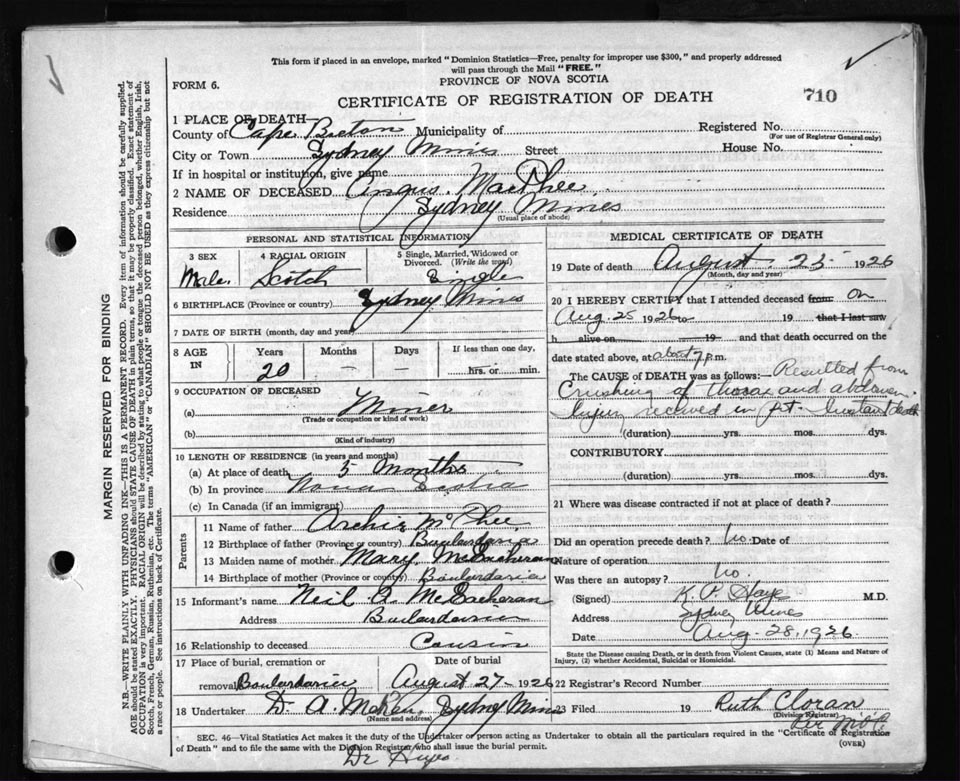 This form if placed in an envelope, marked "Dominion Statistics—Free, penalty for improper use $300," and properly addressed
will pass through the Mail "FREE."
FORM 6.
PROVINCE OF NOVA SCOTIA
CERTIFICATE OF REGISTRATION OF DEATH
710
1 PLACE OF DEATH—
County of Cape Breton Municipality of
Registered No.
(For use of Registrar General only)
City or Town Sydney Mines Street
House No.
If in hospital or institution, give name
2 NAME OF DECEASED Angus. MacPhee
Residence Sydney Mines
(Usual place of abode)
PERSONAL AND STATISTICAL INFORMATION
3 SEX
Male.
4 RACIAL ORIGIN
Scotch
5 Single, Married, Widowed or Divorced. (Write the word)
Single
6 BIRTHPLACE (Province or country) Sydney Mines
7 DATE OF BIRTH (month, day and year)
8 AGE IN
Years
20
Months
—
Days
—
If less than one day,
hrs. or min.
9 OCCUPATION OF DECEASED
(a) Miner
(Trade or occupation or kind of work)
(b)
(Kind of industry)
10 LENGTH OF RESIDENCE (in years and months)
(a) At place of death 5 months
(b) In province Nova Scotia
(c) In Canada (if an immigrant)
Parents
11 Name of father Archie McPhee
12 Birthplace of father (Province or country) Boulardarie
13 Maiden name of mother Mary McEacheran
14 Birthplace of mother (Province or country) Boulardarie
15 Informant's name Neil A McEacheran
Address Boulardarie
16 Relationship to deceased Cousin
17 Place of burial, cremation or removal Boulardarie
Date of burial
August 27- 1926
18 Undertaker D. A. Sydney Mines
(Name and address)
MEDICAL CERTIFICATE OF DEATH
19 Date of death August 25 1926
(Month, day and year)
20 I HEREBY CERTIFY that I attended deceased from on
Aug 25 1926 to 19 that I last saw
h alive on 19 and that death occurred on the
date stated above, at about 7 p.m.
The CAUSE of DEATH was as follows:- Resulted from
Crushing of thorax and abdomen.
Injury received in pit - Instant death
(duration) yrs. mos. dys.
CONTRIBUTORY
(duration) yrs. mos. dys.
21 Where was disease contracted if not at place of death?
Did an operation precede death? No. Date of
Nature of operation
Was there an autopsy? No.
(Signed) K. M.D.
Address Sydney Mines
Date Aug. 28, 1926
State the Disease causing Death, or in death from Violent Causes, state (1) Means and Nature of
Injury, (2) whether Accidental, Suicidal or Homicidal.
22 Registrar's Record Number
23 Filed 19 Ruth Cloran
(Division Registrar)
Per
(OVER)
SEC. 46—Vital Statistics Act makes it the duty of the Undertaker or person acting as Undertaker to obtain all the particulars required in the "Certificate of Registration
of Death" and to file the same with the Division Registrar who shall issue the burial permit.
Dr
MARGIN RESERVED FOR BINDING
N.B.—WRITE PLAINLY WITH UNFADING INK—THIS IS A PERMANENT RECORD. Every item of information should be carefully supplied.
AGE should be stated EXACTLY. PHYSICIANS should STATE CAUSE OF DEATH in plain terms, so that it may be properly classified. Exact statement of
OCCUPATION is very important. RACIAL ORIGIN will be described by stating to what people or tongue the deceased person belonged, whether English, Irish,
Scotch, French, German, Russian, Ruthenian, etc. The terms "AMERICAN" or "CANADIAN" SHOULD NOT BE USED as they express citizenship but not
a race or people. See instructions on back of Certificate.